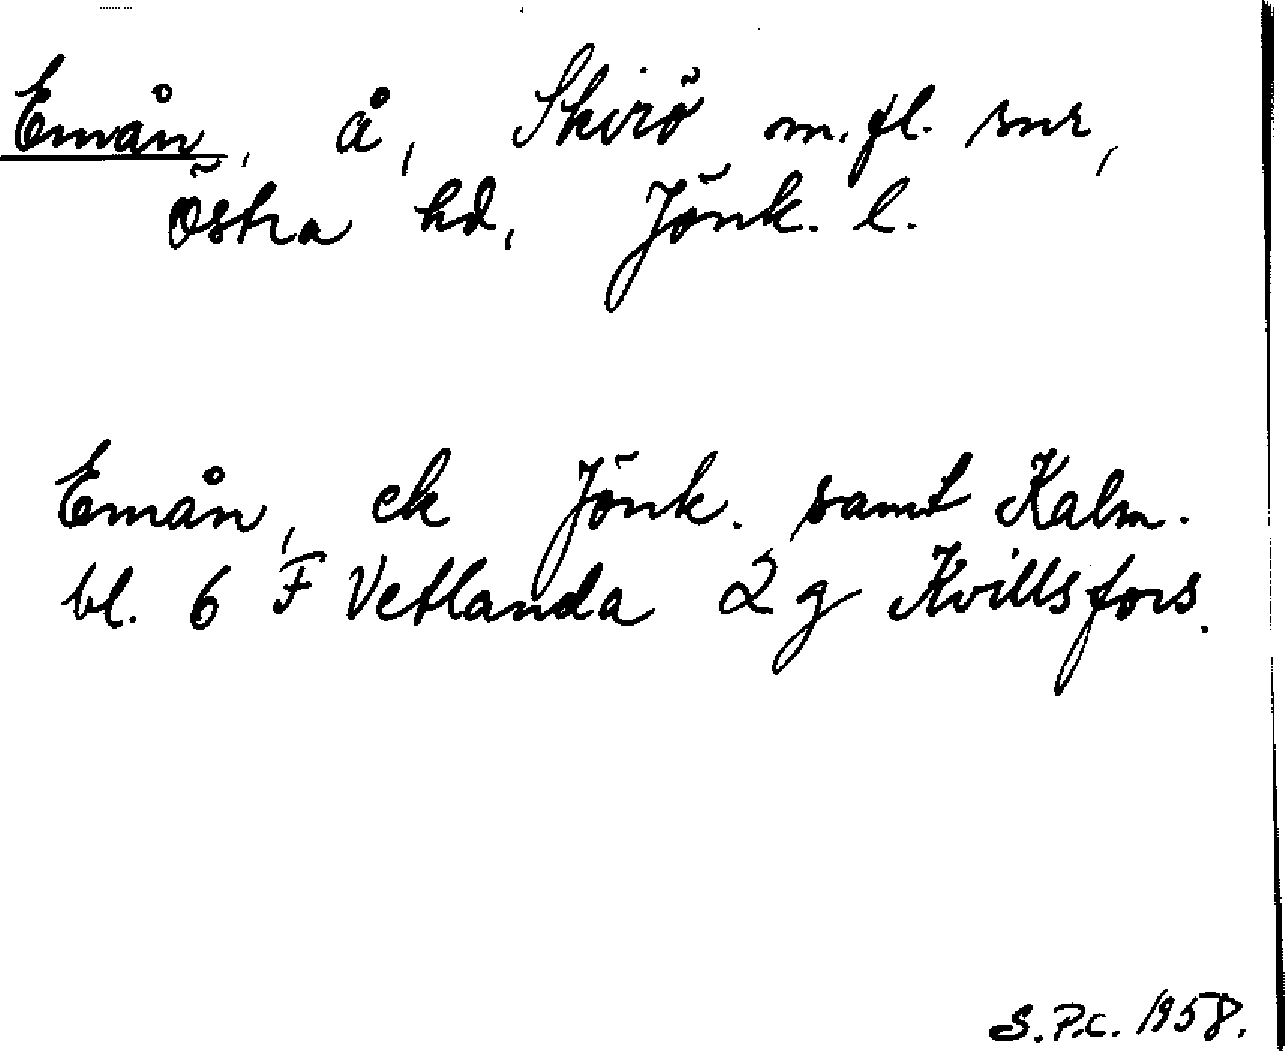 Emån, å, Skirö m.fl. snr,
Östra hd, Jönk. l.
Emån, ek Jönk. samt Kalm.
bl. 6 F Vetlanda 2 g Kvillsfors.
S.P.C. 1958.